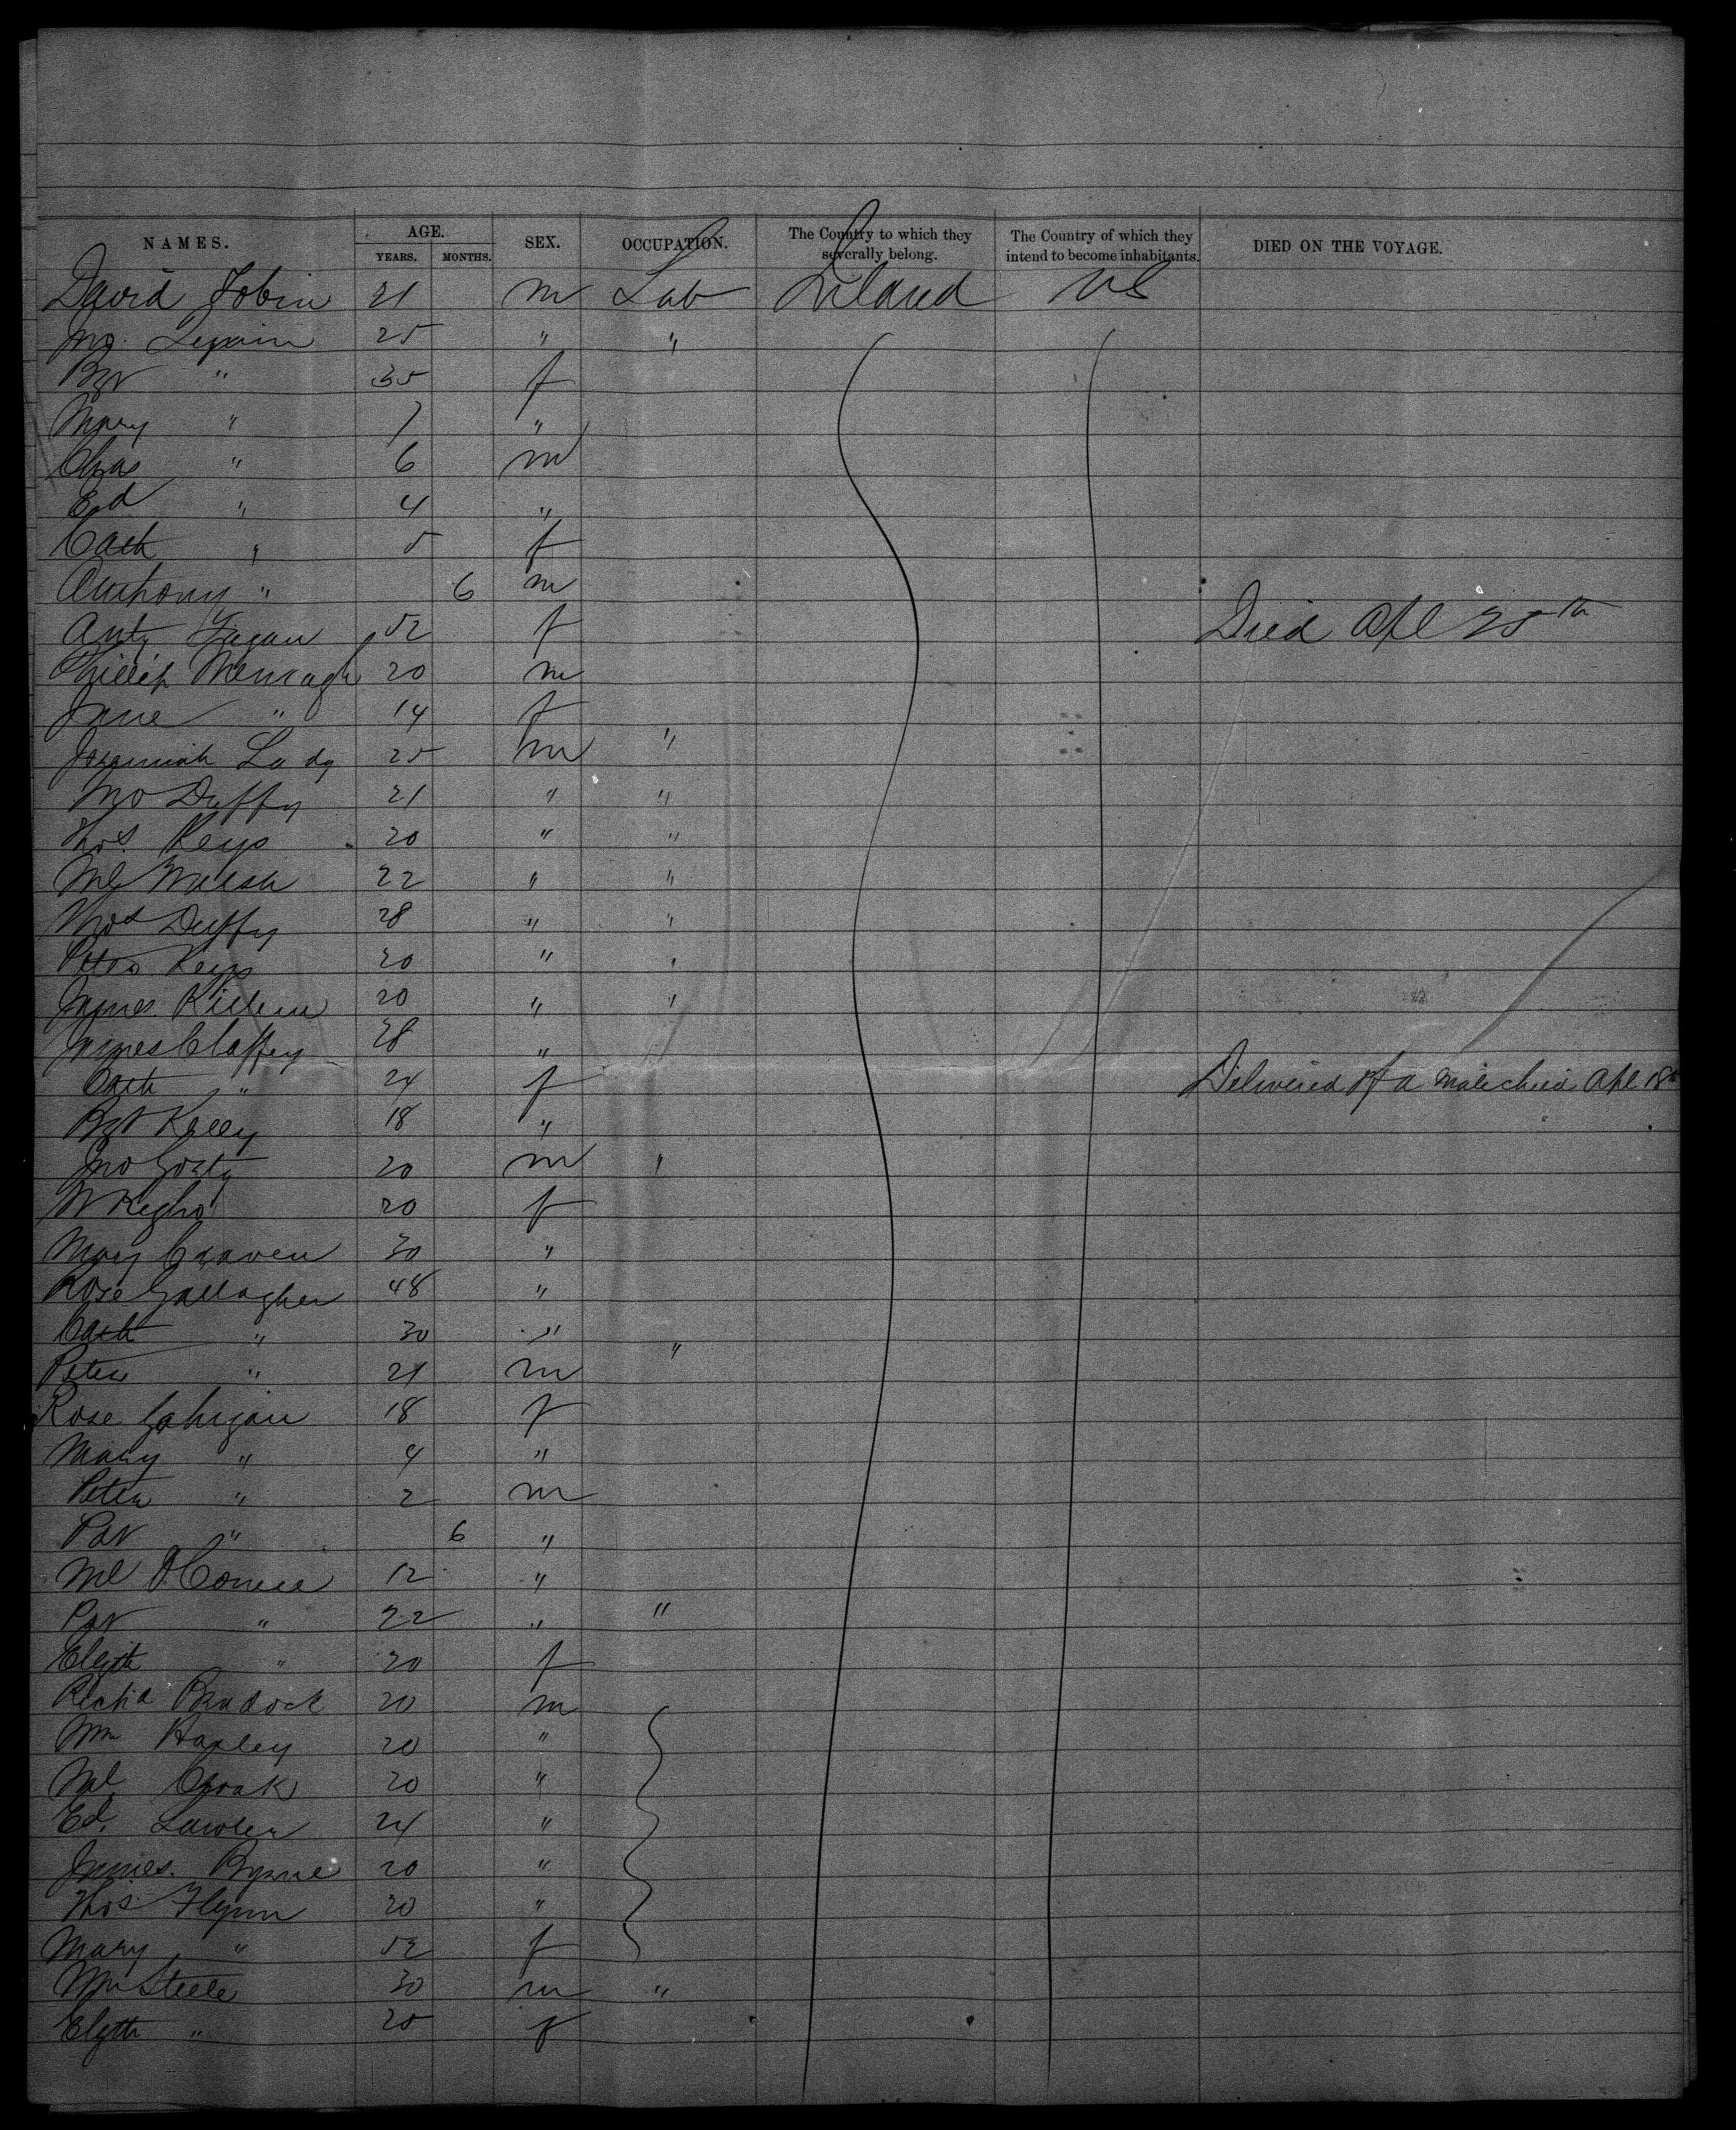 NAMES. AGE. YEARS. MONTHS. SEX. OCCUPATION. The Country to which they severally belong. The Country of which they intend to become inhabitants. DIED ON THE VOYAGE.
David Tobin 21 m Lab Ireland US
Jno. 25 " "
Bgt " 35 f
Mary " 7 "
Chas " 6 m
Ed " 4 "
Cath " 5 f
Anthony " 6 m
Anty Fagan 52 f Died Apl 25th
Phillip 20 m
Jane " 14 f
Jeremiah 25 m "
Jno Duffy 21 " "
Thos. Keys 20 " "
Ml Walsh 22 " "
Thos Duffy 28 " "
Peter Keys 20 " "
James Killen 20 " "
James Claffey 28 "
Cath " 24 f Delivered of a male child Apl 18th
Bgt Kelly 18 "
Jno 20 m "
20 f
Mary Craven 30 "
Rose Gallagher 48 "
Cath " 30 "
Peter " 21 m "
Rose Gahigan 18 f
Mary " 4 "
Peter " 2 m
Pat " 6 "
Ml 12 "
Pat " 22 " "
Elizth " 20 f
Richd 20 m
Wm 20 "
Ml Croak 20 "
Ed. Lawler 24 "
James. Byrne 20 "
Thos Flynn 20 "
Mary " 52 f
Wm Steele 30 m "
Elizth " 25 f